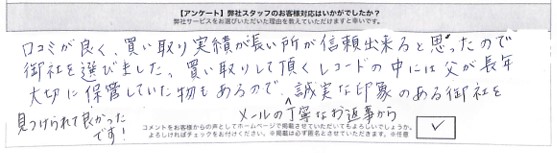 【アンケート】弊社スタッフのお客様対応はいかがでしたか？
弊社サービスをお選びいただいた理由を教えていただけますと幸いです。
口コミが良く、買い取り実績が長い所が信頼出来ると思ったので
御社を選びました。買い取りして頂くレコードの中には父が長年
大切に保管していた物もあるので、誠実な印象のある御社を
メールの丁寧なお返事から
見つけられて良かった
です！
コメントをお客様からの声としてホームページで掲載させていただいてもよろしいでしょうか。
よろしければチェックをお付けください。※掲載は必ず匿名とさせていただきます。※任意
✓